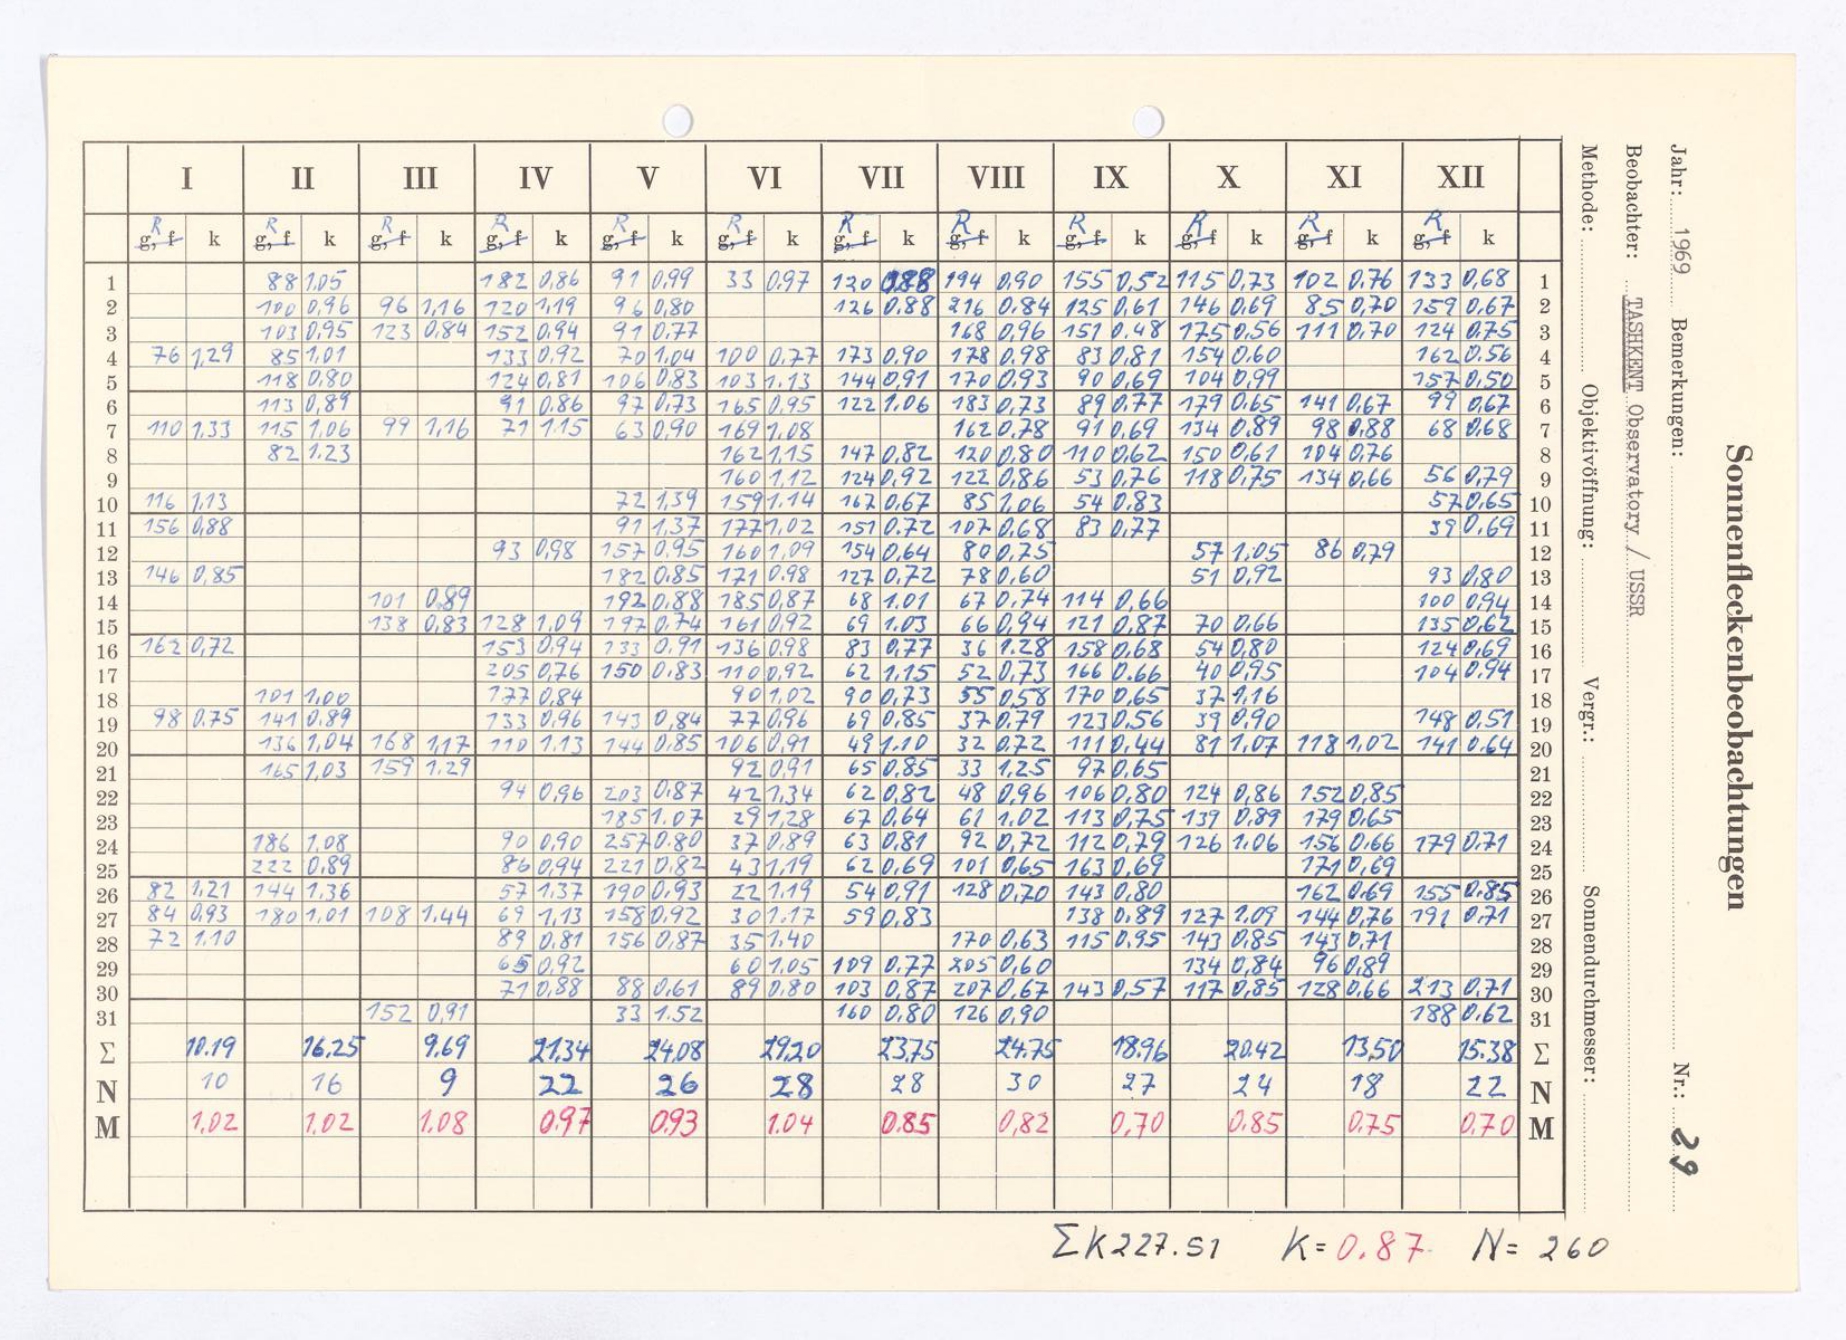 I II III IV V VI VII VIII IX X XI XII
R R R R R R R R R R R R
g, f k g, f k g, f k g, f k g, f k g, f k g, f k g, f k g, f k g, f k g, f k g, f k
1 88 1,05 182 0,86 91 0,99 33 0,97 120 0,88 194 0,90 155 0,52 115 0,73 102 0,76 133 0,68 1
2 100 0,96 96 1,16 120 1,19 96 0,80 126 0,88 216 0,84 125 0,61 146 0,69 85 0,70 159 0,67 2
3 103 0,95 123 0,84 152 0,94 91 0,77 168 0,96 151 0.48 175 0,56 111 0,70 124 0,75 3
4 76 1,29 85 1,01 133 0,92 70 1,04 100 0,77 173 0,90 178 0,98 83 0,81 154 0,60 162 0.56 4
5 118 0,80 124 0,81 106 0,83 103 1.13 144 0,91 170 0,93 90 0,69 104 0,99 157 0,50 5
6 113 0,89 91 0.86 97 0,73 165 0,95 122 1.06 183 0,73 89 0,77 179 0,65 141 0,67 99 0,67 6
7 110 1,33 115 1,06 99 1,16 71 1.15 63 0,90 169 1,08 162 0,78 91 0,69 134 0,89 98 0,88 68 0,68 7
8 82 1.23 162 1,15 147 0,82 120 0,80 110 0,62 150 0,61 104 0,76 8
9 160 1,12 124 0,92 122 0,86 53 0,76 118 0,75 134 0,66 56 0,79 9
10 116 1,13 72 1,39 159 1.14 167 0,67 85 1,06 54 0.83 57 0,65 10
11 156 0,88 91 1,37 177 1,02 151 0.72 107 0,68 83 0,77 39 0.69 11
12 93 0,98 157 0,95 160 1,09 154 0,64 80 0,75 57 1.05 86 0,79 12
13 146 0,85 182 0.85 171 0.98 127 0,72 78 0,60 51 0,92 93 0,80 13
14 101 0,89 192 0.88 185 0,87 68 1.01 67 0,74 114 0,66 100 0,94 14
15 138 0,83 128 1,09 197 0,74 161 0,92 69 1.03 66 0,94 121 0,87 70 0,66 135 0,62 15
16 162 0,72 153 0,94 133 0.91 136 0.98 83 0,77 36 1.28 158 0.68 54 0,80 124 0,69 16
17 205 0,76 150 0.83 110 0,92 62 1,15 52 0,73 166 0.66 40 0,95 104 0.94 17
18 101 1,00 177 0,84 90 1,02 90 0,73 55 0,58 170 0,65 37 1,16 18
19 98 0.75 141 0.89 133 0,96 143 0,84 77 0,96 69 0,85 37 0.79 123 0,56 39 0,90 148 0.51 19
20 136 1,04 168 1,17 110 1.13 144 0.85 106 0,91 49 1.10 32 0,72 111 0,44 81 1,07 118 1,02 141 0.64 20
21 165 1,03 159 1.29 92 0,91 65 0,85 33 1,25 97 0,65 21
22 94 0,96 203 0.87 42 1,34 62 0,82 48 0,96 106 0,80 124 0,86 152 0,85 22
23 185 1.07 29 1,28 67 0,64 61 1.02 113 0,75 139 0,89 179 0,65 23
24 186 1,08 90 0,90 257 0.80 37 0,89 63 0,81 92 0,72 112 0,79 126 1.06 156 0,66 179 0,71 24
25 222 0,89 86 0,94 221 0.82 43 1,19 62 0,69 101 0,65 163 0,69 171 0,69 25
26 82 1,21 144 1.36 57 1.37 190 0.93 22 1,19 54 0,91 128 0,70 143 0,80 162 0,69 155 0.85 26
27 84 0,93 180 1,01 108 1,44 69 1,13 158 0.92 30 1.17 59 0,83 138 0.89 127 1.09 144 0,76 191 0,71 27
28 72 1.10 89 0.81 156 0,87 35 1.40 170 0,63 115 0.95 143 0,85 143 0,71 28
29 65 0,92 60 1.05 109 0.77 205 0,60 134 0,84 96 0,89 29
30 71 0,88 88 0,61 89 0.80 103 0,87 207 0,67 143 0,57 117 0,85 128 0,66 213 0,71 30
31 152 0,91 33 1.52 160 0,80 126 0,90 188 0.62 31
Σ 10.19 16,25 9.69 21,34 24.08 29,20 23,75 24.75 18.96 20.42 13,50 15.38 Σ
N 10 16 9 22 26 28 28 30 27 24 18 22 N
M 1,02 1.02 1,08 0.97 0.93 1.04 0.85 0,82 0,70 0.85 0.75 0,70 M
ΣK 227.51 K= 0.87 N= 260
Sonnenfleckenbeobachtungen
Jahr: 1969 Bemerkungen: Nr.: 29
Beobachter: TASHKENT Observatory / USSR
Methode: Objektivöffnung: Vergr.: Sonnendurchmesser: